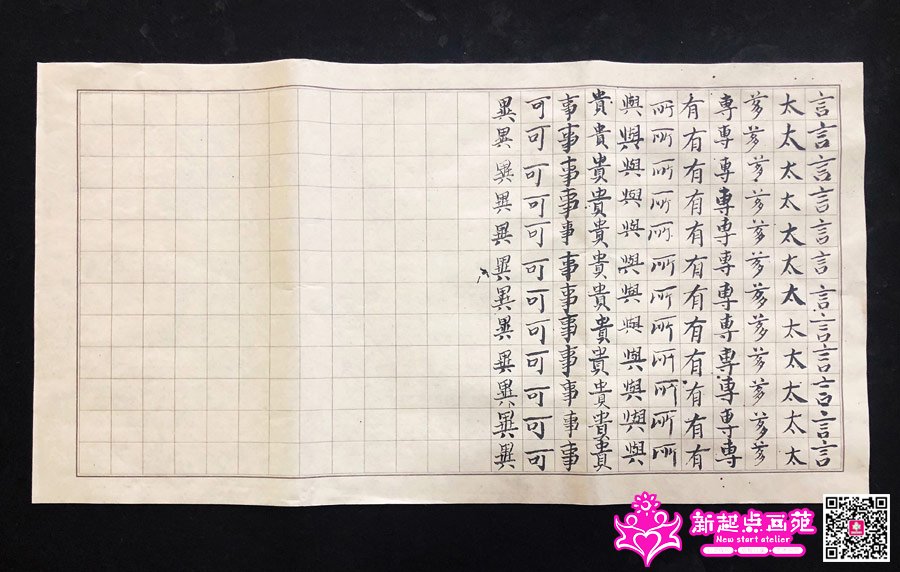 言言言言言言言言言言言言
太太太太太太太太太太太太
専専専専専専専専専専専専
有有有有有有有有有有有有
所所所所所所所所所所所所
與與與與與與與與與與與與
貴貴貴貴貴貴貴貴貴貴貴貴
事事事事事事事事事事事事
可可可可可可可可可可可可
異異異異異異異異異異異異
新起点画苑
New start atelier